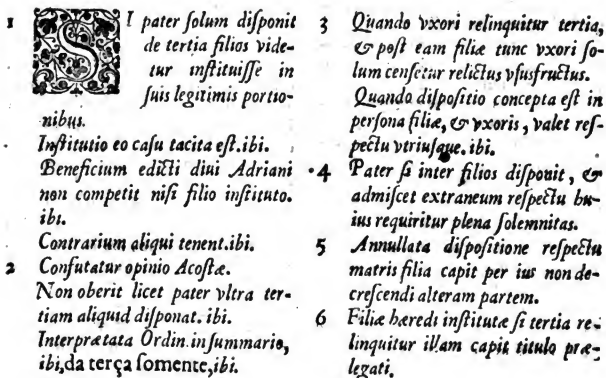 1 SI pater ſolum diſponit
de tertia filios vide-
tur inſtituiſſe in
ſuis legitimis portio-
nibus.
Inſtitutio eo caſu tacita eſt.ibi.
Beneficium edicti diui Adriani
non competit niſi filio inſtituto.
ibi.
Contrarium aliqui tenent.ibi.
2 Confutatur opinio Acoſtæ.
Non oberit licet pater vltra ter-
tiam aliquid diſponat. ibi.
Interprætata Ordin.in ſummario,
ibi,da terça ſomente,ibi.
3 Quando vxori relinquitur tertia,
& poſt eam filiæ tunc vxori ſo-
lum cenſetur relictus vſusfructus.
Quando diſpoſitio concepta eſt in
perſona filiæ, & vxoris, valet reſ-
pectu vtriuſque. ibi.
4 Pater ſi inter filios diſponit, &
admiſcet extraneum reſpectu hu-
ius requiritur plena ſolemnitas.
5 Annullata diſpoſitione reſpectu
matris filia capit per ius non de-
creſcendi alteram partem.
6 Filiæ hæredi inſtitutæ ſi tertia re-
linquitur illam capit titulo præ-
legati.